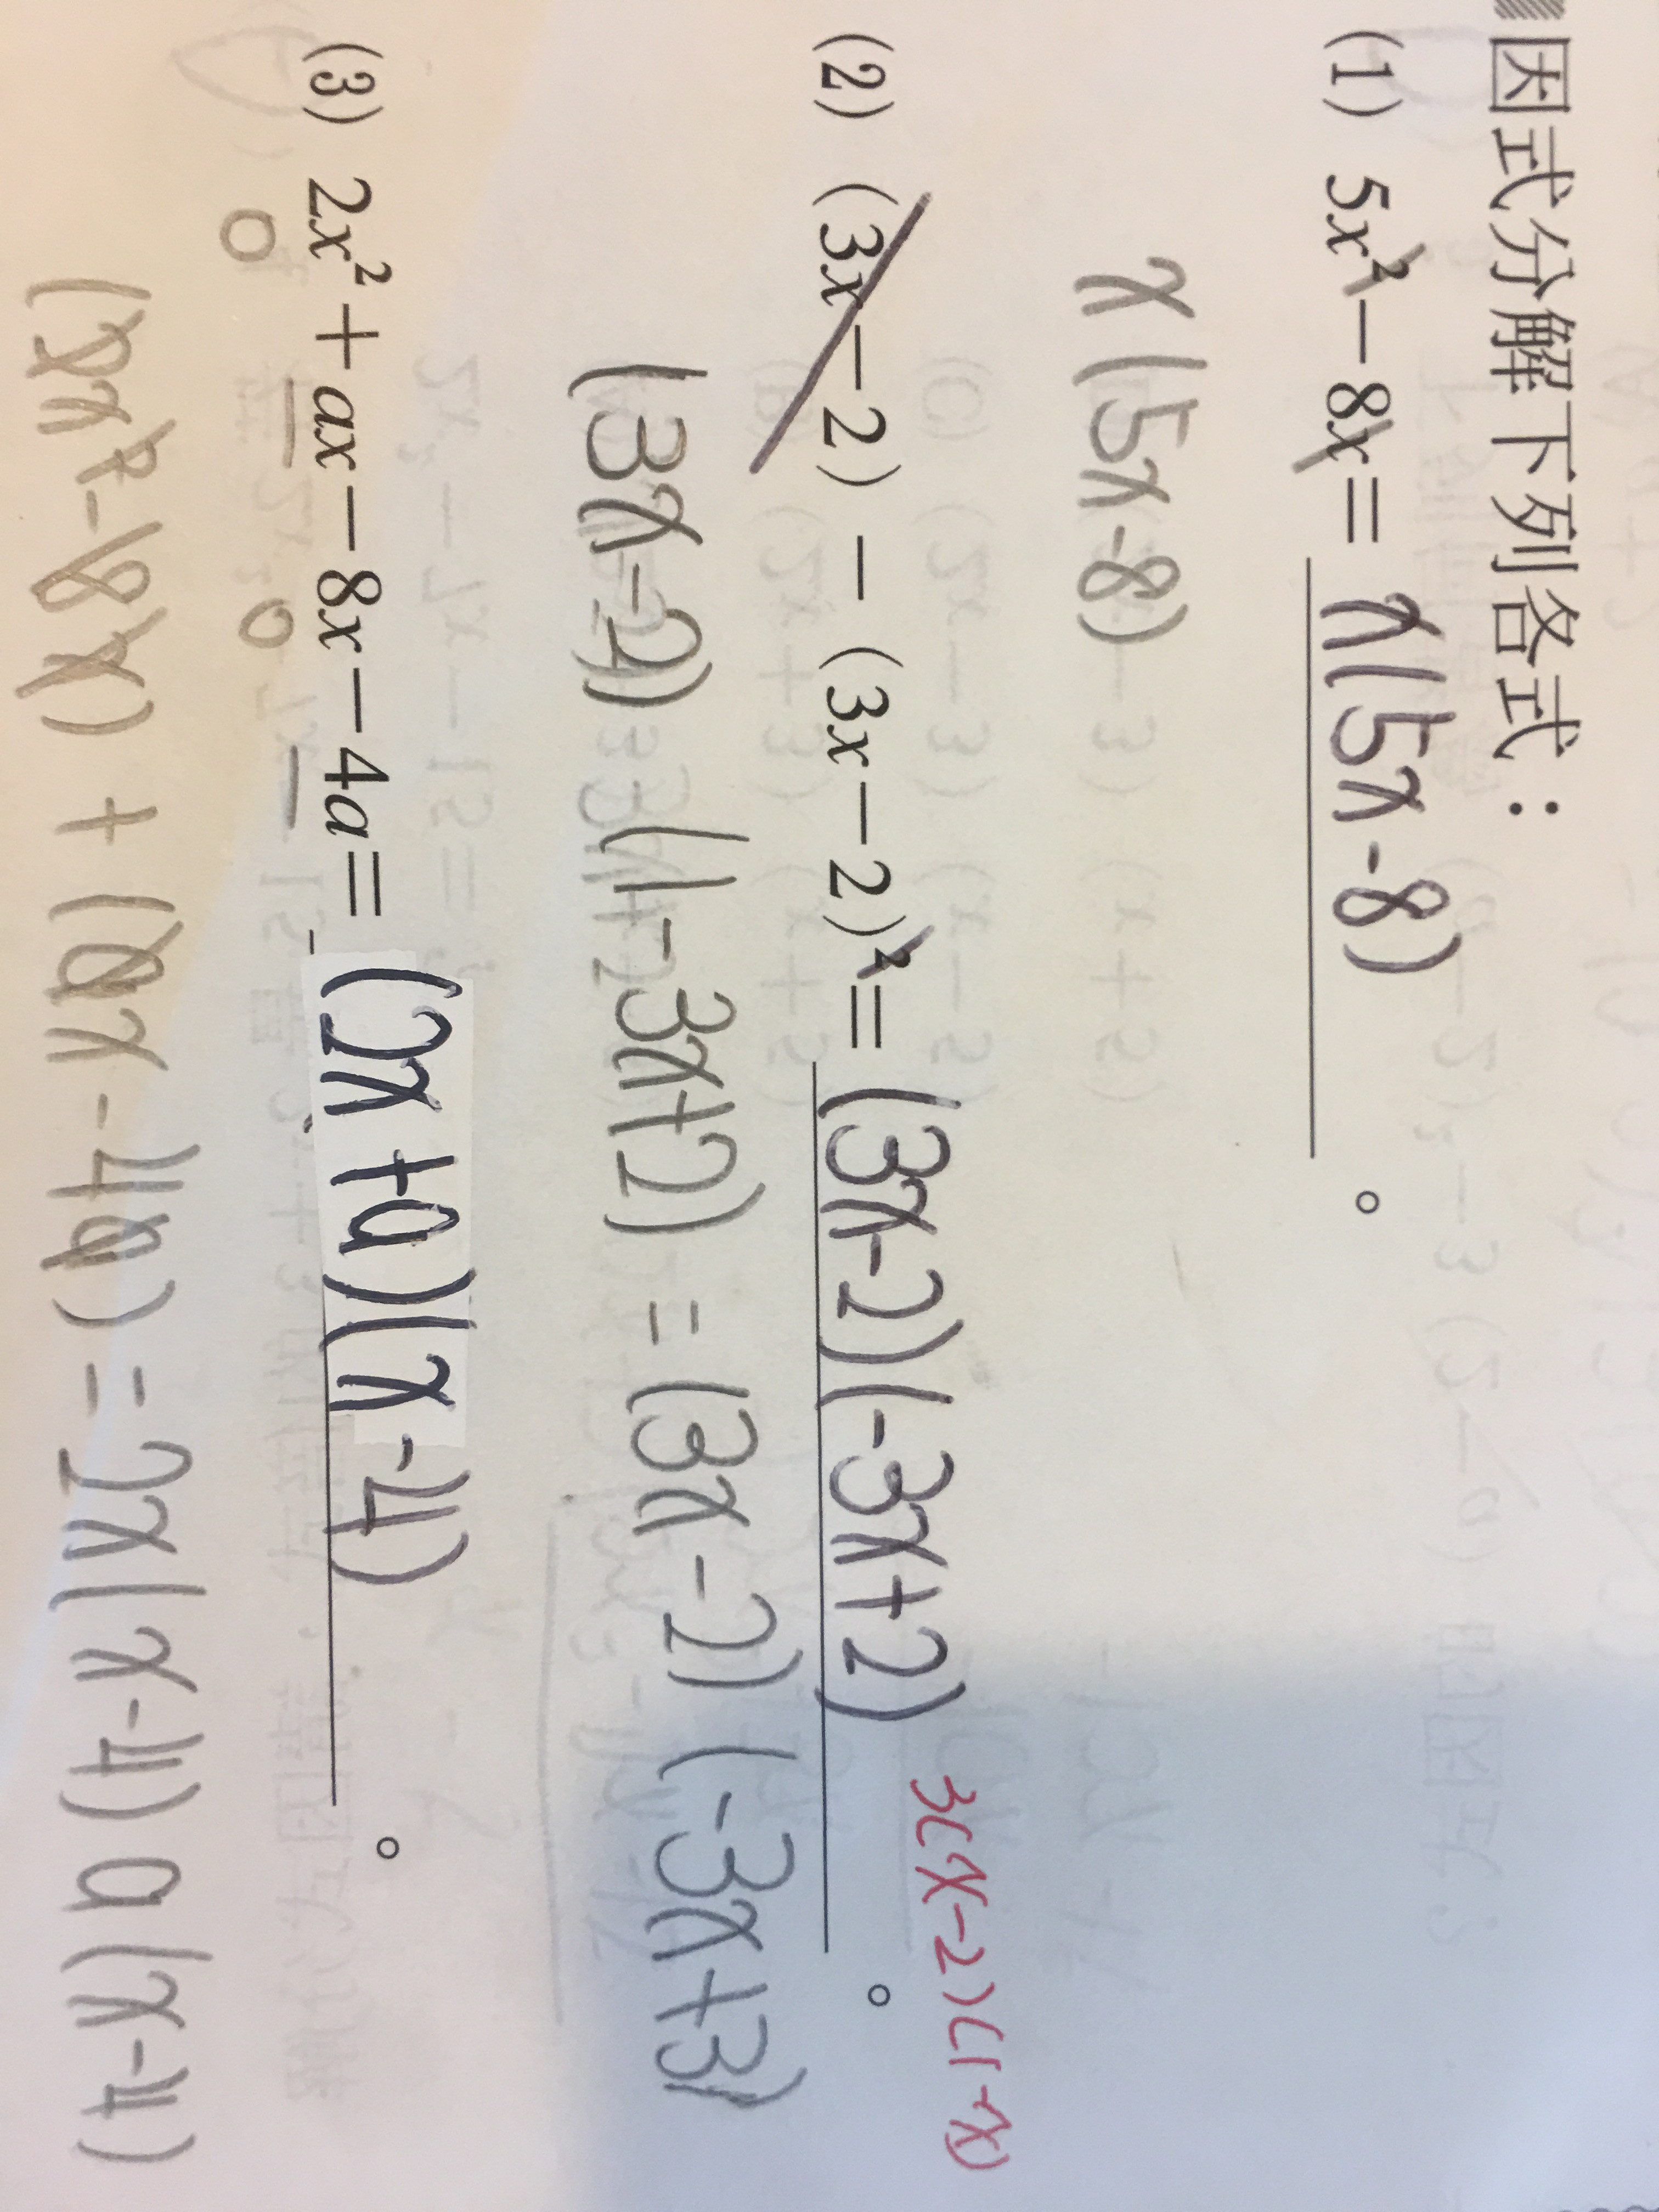 因式分解下列各式：
(1) 5x²－8x＝ x(5x-8) 。
x(5x-8)
(2) (3x－2)－(3x－2)²＝ (3x-2)(-3x+2) 。
3(x-2)(1-x)
(3x-2) (1-3x+2) = (3x-2)(-3x+3)
(3) 2x²＋ax－8x－4a＝ (2x+a)(x-4) 。
(2x²-8x) + (ax-4a) = 2x(x-4) a(x-4)